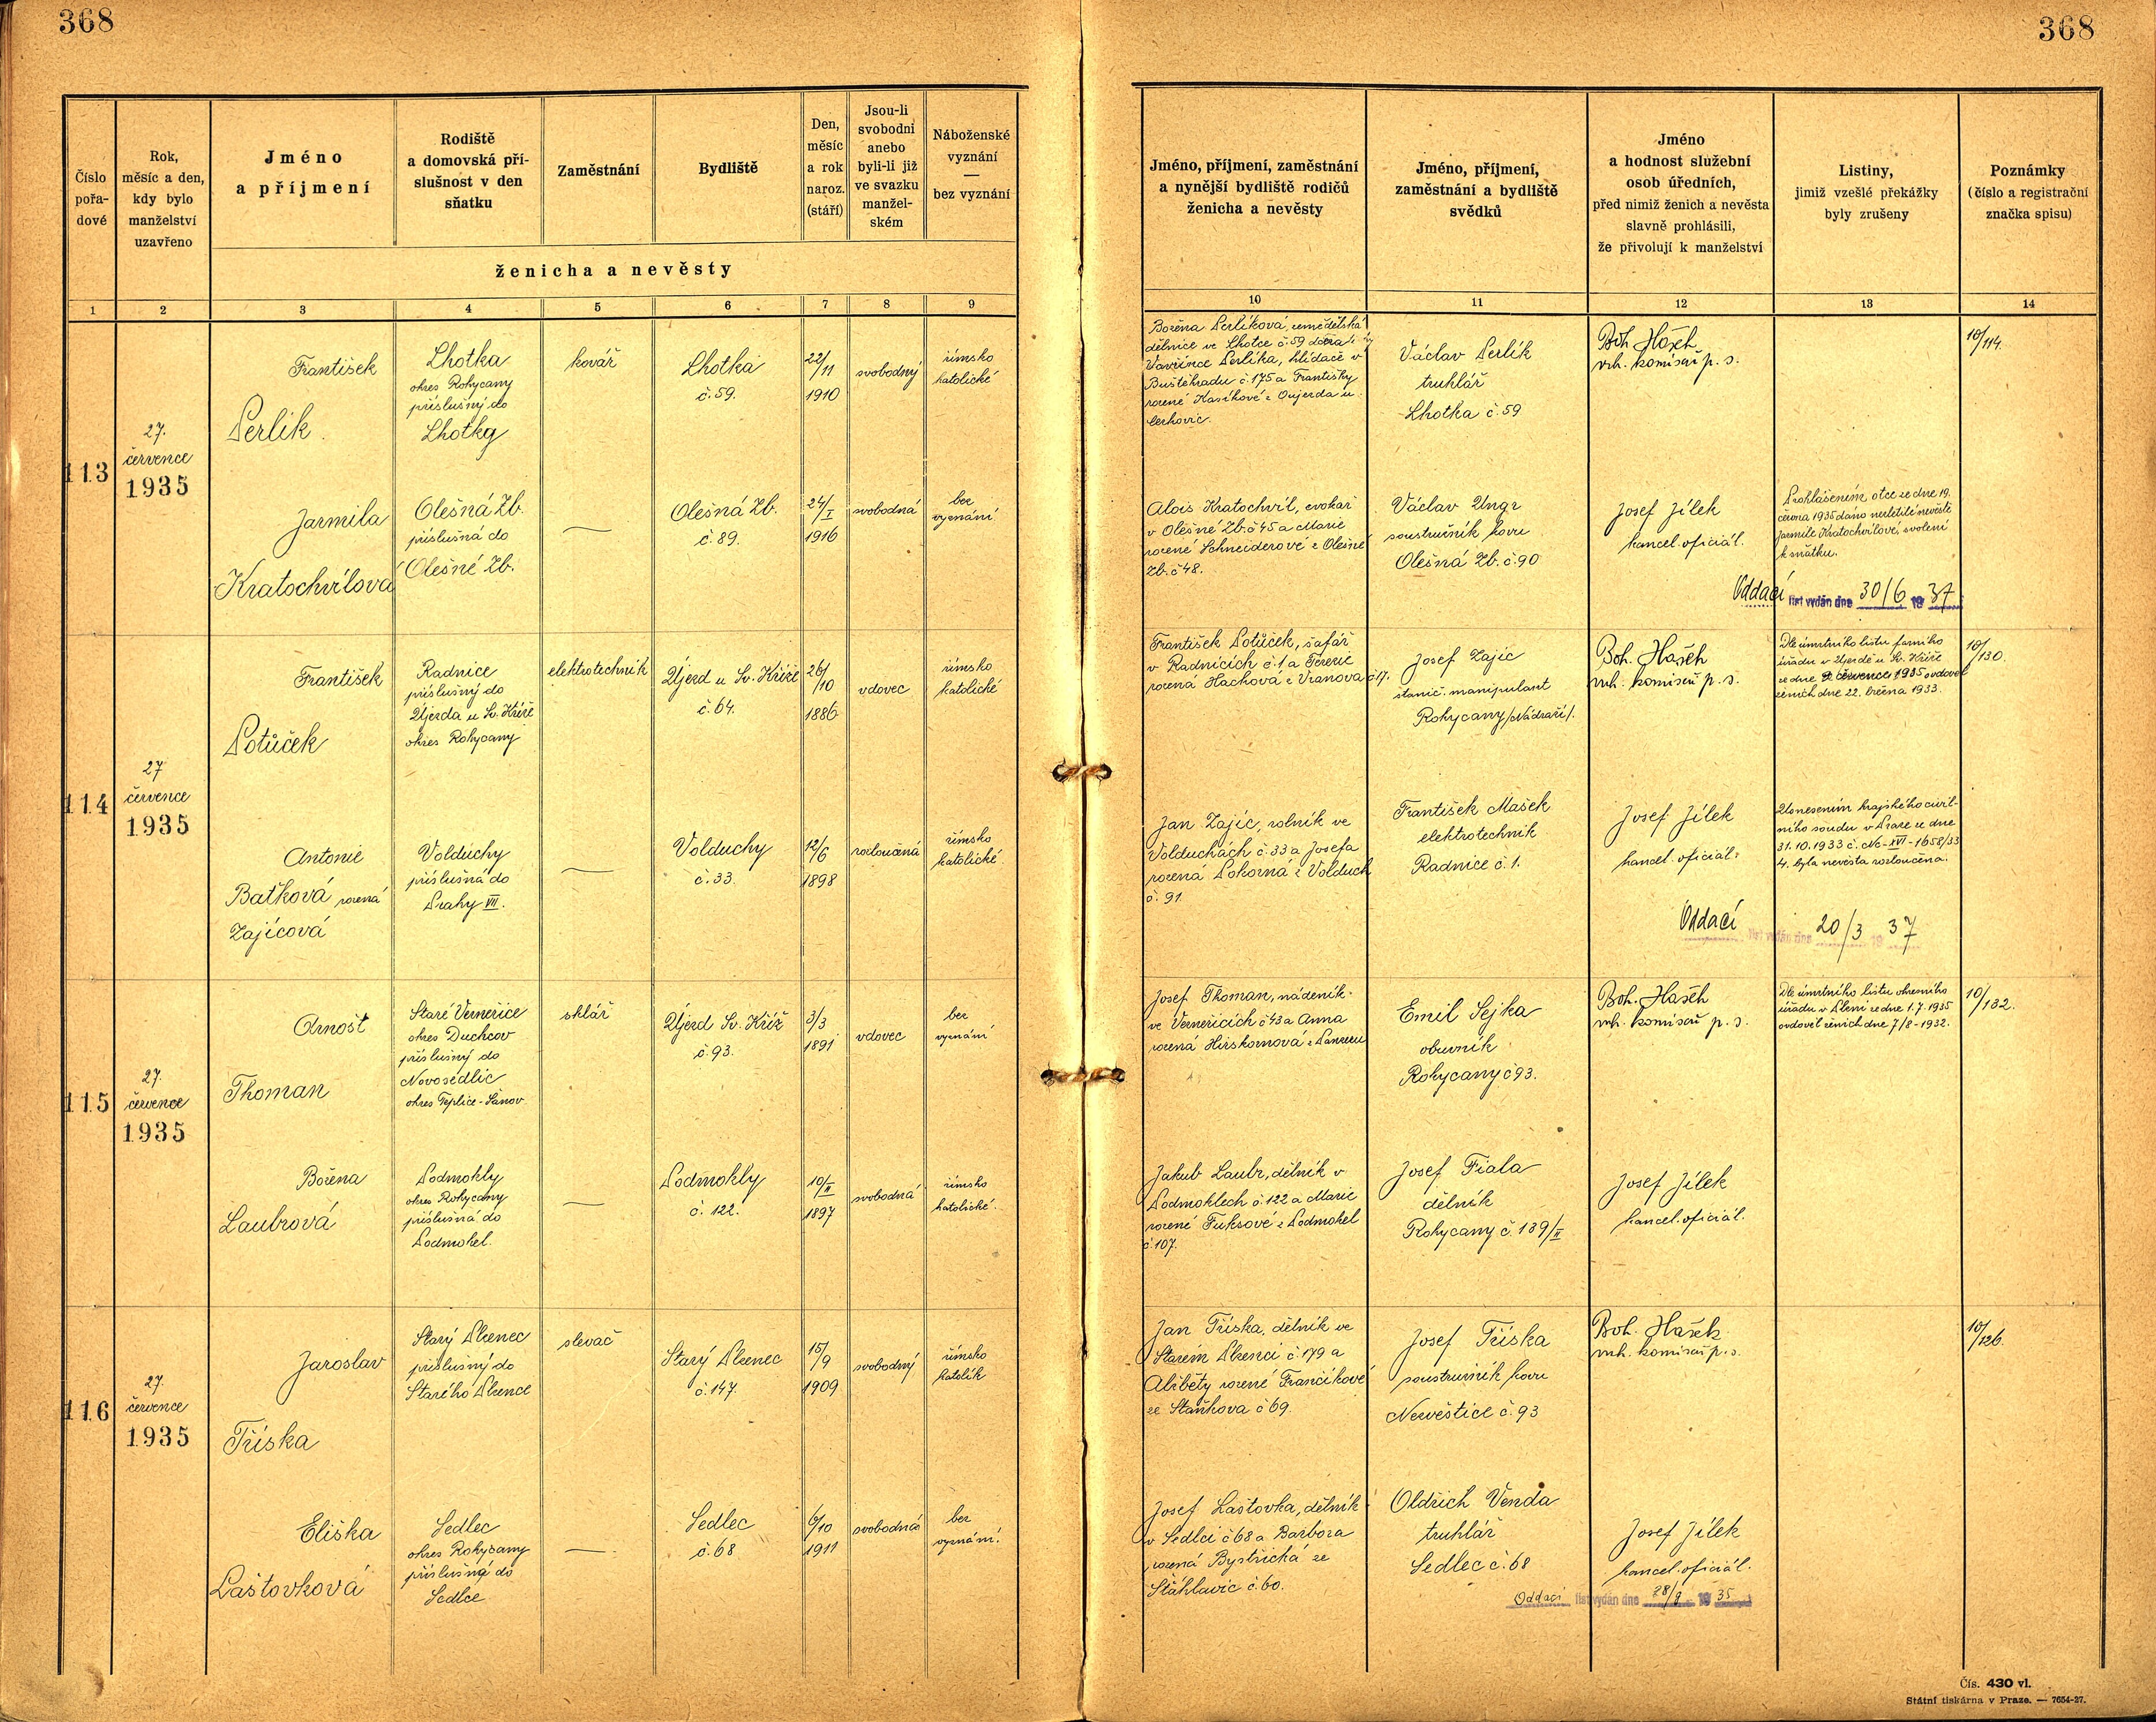 368
368
Číslo pořa-dové
Rok, měsíc a den, kdy bylo manželství uzavřeno
Jméno a příjmení
Rodiště a domovská pří-slušnost v den sňatku
Zaměstnání
Bydliště
Den, měsíc a rok naroz. (stáří)
Jsou-li svobodni anebo byli-li již ve svazku manžel-ském
Náboženské vyznání — bez vyznání
ženicha a nevěsty
Jméno, příjmení, zaměstnání a nynější bydliště rodičů ženicha a nevěsty
Jméno, příjmení, zaměstnání a bydliště svědků
Jméno a hodnost služební osob úředních, před nimiž ženich a nevěsta slavně prohlásili, že přivolují k manželství
Listiny, jimiž vzešlé překážky byly zrušeny
Poznámky (číslo a registrační značka spisu)
1 2 3 4 5 6 7 8 9 10 11 12 13 14
113
27.
července
1935
František
Perlík
Lhotka
okres Rokycany
příslušný do
Lhotky
kovář
Lhotka
č. 59.
22/11
1910
svobodný
římsko
katolické
Božena Perlíková, zemědělská
dělnice ve Lhotce č. 59 dcera
Vavřince Perlíka, hlídače v
Buštěhradu č. 175 a Františky
rozené
Václav Perlík
truhlář
Lhotka č. 59
Boh. Hašek
vrh. komisař p. s.
10/114
Jarmila
Kratochvílová
Olešná Zb.
příslušná do
Olešné Zb.
Olešná Zb.
č. 89.
24/I
1916
svobodná
bez
vyznání
Alois Kratochvíl, cvokař
v Olešné Zb. č 45 a Marie
rozené Schneiderové z Olešné
Zb. č 48.
Václav Ungr
soustružník kovu
Olešná Zb. č. 90
Josef Jílek
kancel. oficiál.
Prohlášením otce ze dne 19.
června 1935 dáno nezletilé nevěstě
Jarmile Kratochvílové, svolení
k sňatku.
Oddací list vydán dne 30/6 19 37
114
27
července
1935
František
Potůček
Radnice
příslušný do
Újezda u Sv. Kříže
okres Rokycany
elektrotechnik
Újezd u Sv. Kříže
č. 64.
26/10
1886
vdovec
římsko
katolické
František Potůček, šafář
v Radnicích č. 1 a Terezie
rozená Hachová z Vranova č 17.
Josef Zajíc
stanič. manipulant
Rokycany /Nádraží/.
Boh. Hašek
vrh. komisař p. s.
Dle úmrtního listu farního
úřadu v Újezdě u Sv. Kříže
ze dne července 1935 ovdověl
ženich dne 22. března 1933.
10/130.
Antonie
Baťková rozená
Zajícová
Volduchy
příslušná do
Prahy VII.
Volduchy
č. 33.
12/6
1898
rozloučená
římsko
katolické
Jan Zajíc, rolník ve
Volduchách č. 33 a Josefa
rozená Pokorná z Volduch
č. 91.
František Mašek
elektrotechnik
Radnice č. 1.
Josef Jílek
kancel. oficiál.
Usnesením krajského civil-
ního soudu v Praze ze dne
31. 10. 1933 č. Nc-XVI-1658/33
4. byla nevěsta rozloučena.
Oddací list vydán dne 20/3 19 37
115
27.
července
1935
Arnošt
Thoman
Staré Verneřice
okres Duchcov
příslušný do
Novosedlic
okres Teplice-Šanov
sklář
Újezd Sv. Kříž
č. 93.
3/3
1891
vdovec
bez
vyznání
Josef Thoman, nádeník
ve Verneřicích č 43 a Anna
rozená
Emil Sejka
obuvník
Rokycany č 93.
Boh. Hašek
vrh. komisař p. s.
Dle úmrtního listu okresního
úřadu v Plzni ze dne 1. 7. 1935
ovdověl ženich dne 7/8 - 1932.
10/132.
Božena
Laubrová
Podmokly
okres Rokycany
příslušná do
Podmokel.
Podmokly
č. 122.
10/II
1897
svobodná
římsko
katolické.
Jakub Laubr, dělník v
Podmoklech č. 122 a Marie
rozené Fuksové z Podmokel
č. 107.
Josef Fiala
dělník
Rokycany č. 189/II
Josef Jílek
kancel. oficiál.
116
27.
července
1935
Jaroslav
Tříska
Starý Plzenec
příslušný do
Starého Plzence
slevač
Starý Plzenec
č. 147.
15/9
1909
svobodný
římsko
katolík
Jan Tříska, dělník ve
Starém Plzenci č. 179 a
Alžběty rozené Frančíkové
ze Staňkova č 69.
Josef Tříska
soustružník kovu
Nezvěstice č. 93
Boh. Hašek
vrh. komisař p. s.
10/126.
Eliška
Laštovková
Sedlec
okres Rokycany
příslušná do
Sedlce
Sedlec
č. 68
6/10
1911
svobodná
bez
vyznání.
Josef Laštovka, dělník
v Sedlci č 68 a Barbora
rozená Bystřická ze
Šťáhlavic č. 60.
Oldřich Venda
truhlář
Sedlec č. 68
Josef Jílek
kancel. oficiál.
Oddací list vydán dne 28/8 19 35
Čís. 430 vl.
Státní tiskárna v Praze. — 7654-27.